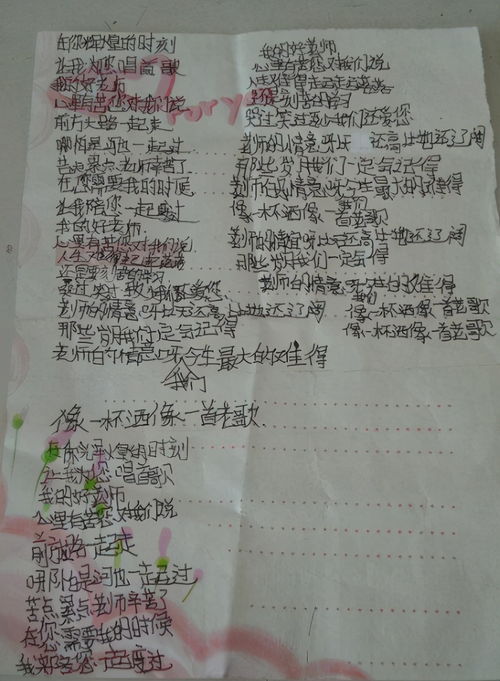 在你辉煌的时刻
让我为您唱首歌
我的好老师
心里有苦您对我们说
前方大路一起走
哪怕是河也一起过
苦点累点老师辛苦了
在您需要我的时候
让我陪您一起度过
我的好老师
心里有苦您对我们说
人生难得起起落落
还需要刻苦的学习
哭过笑过我们还爱您
老师的情意呀比天还高比地还辽阔
那些岁月我们一定会记得
老师的情意呀今生最大的难得
我们
像一杯酒像一首老歌
在你辉煌的时刻
让我为您唱首歌
我的好老师
心里有苦您对我们说
前方大路一起走
哪怕是河也一起过
苦点累点老师辛苦了
在您需要我的时候
我陪您一起度过
我的好老师
心里有苦您对我们说
人生难得起起落落
还得刻苦的学习
哭过笑过我们还爱您
老师的情意呀比天还高比地还辽阔
那些岁月我们一定会记得
老师的情意呀今生最大的难得
我们
像一杯酒像一首老歌
老师的情意呀比天还高比地还辽阔
那些岁月我们一定会记得
老师的情意呀今生的难得
我们
像一杯酒像一首老歌
像一杯酒像一首老歌